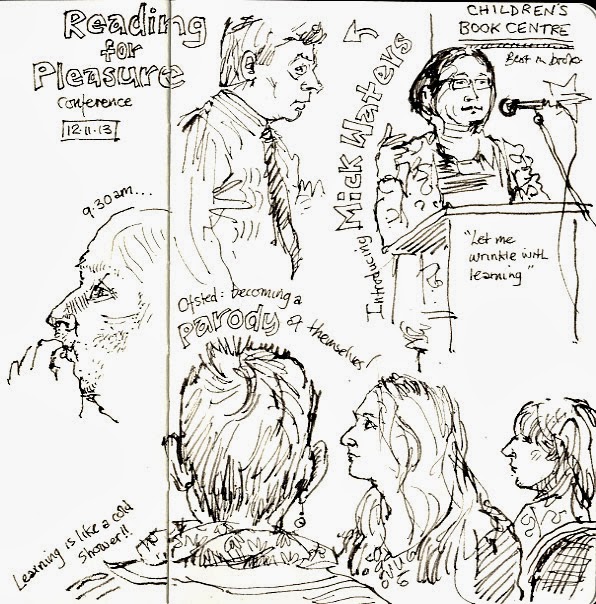 Reading
for
Pleasure
Conference
12.11.13
9.30am...
Introducing Mick Waters
CHILDREN'S
BOOK CENTRE
"Let me
wrinkle with
learning"
Ofsted: becoming a
parody of themselves
Learning is like a cold
shower!!